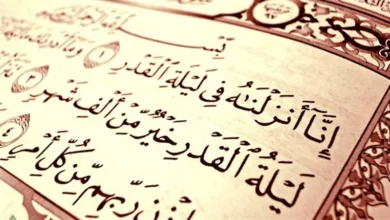 إِنَّآ أَنزَلْنَٰهُ فِى لَيْلَةِ ٱلْقَدْرِ ١ وَمَآ
لَيْلَةُ ٱلْقَدْرِ خَيْرٌ مِّنْ أَلْفِ شَهْرٍ ٣
رَبِّهِم مِّن كُلِّ أَمْرٍ ٤